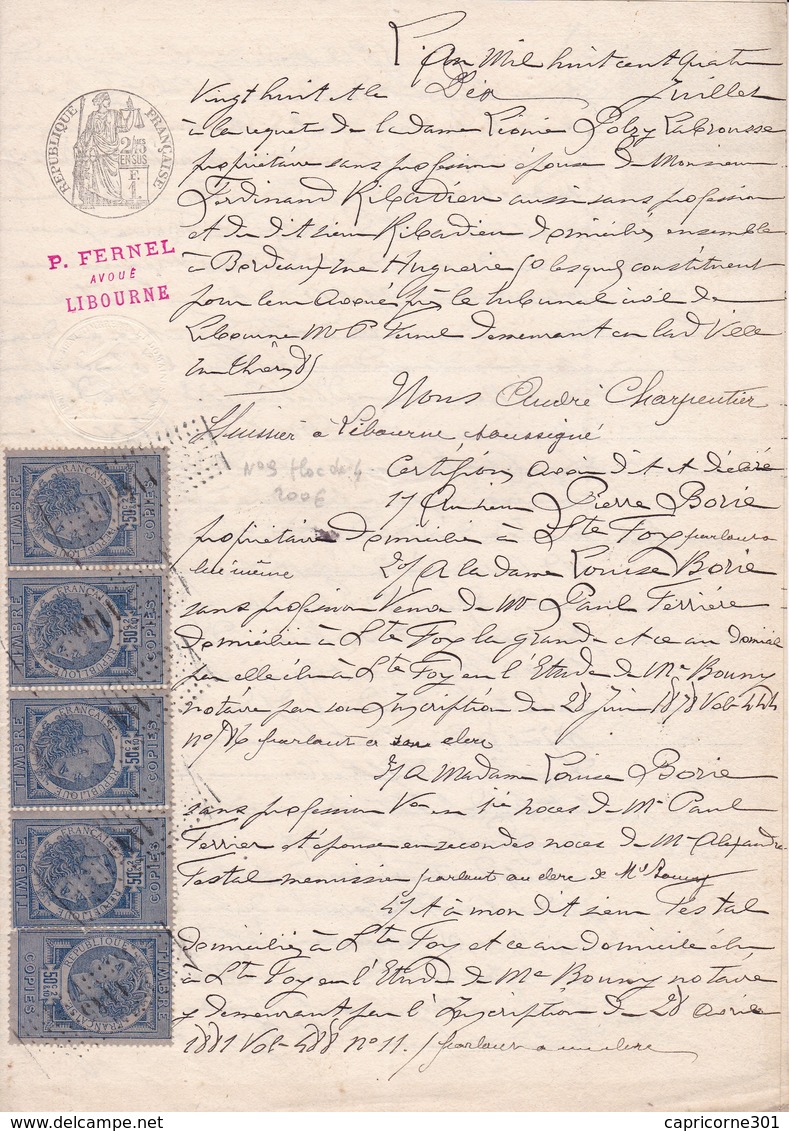 L'an Mil huit cent quatre
Vingt huit et le Dix Juillet
à la requête de la dame Léonie Polzy Labrousse
propriétaire sans profession épouse de Monsieur
Ferdinand Ribadieu aussi sans profession
et du dit sieur Ribadieu domiciliés ensemble
à Bordeaux rue Huguerie 50 lesquels constituent
pour leur avoué près le tribunal civil de
Libourne Me P. Fernel demeurant en lad Ville
rue Thiers 85
Nous André Charpentier
Huissier à Libourne soussigné
Certifions avoir dit et déclaré
1° Au sieur Pierre Borie
propriétaire domicilié à Ste Foy parlant a
lui même 2° A la dame Louise Borie
sans profession Veuve de Mr Paul Ferrière
domiciliée à Ste Foy la grande et ce au domicile
par elle élu à Ste Foy en l'Etude de Me Bouny
notaire par son Inscription de 28 Juin 1878 Vol 444
n° 76 parlant a son clerc
3° A Madame Louise Borie
sans profession Ve en 1re noces de Mr Paul
Ferrier et épouse en secondes noces de Mr Alexandre
Testal parlant au clerc de Me Bouny
4° Et à mon dit sieur Testal
domiciliés à Ste Foy et ce au domicile élu
à Ste Foy en l'Etude de Me Bouny notaire
y demeurant par l'Inscription de 28 avril
1881 Vol 488 n° 11. parlant a un clerc
RÉPUBLIQUE FRANÇAISE
2/10ES
EN SUS
F.
1
P. FERNEL
AVOUÉ
LIBOURNE
N°9 bloc de 4
200€
TIMBRE
RÉPUBLIQUE FRANÇAISE
50c
COPIES
TIMBRE
RÉPUBLIQUE FRANÇAISE
50c
COPIES
TIMBRE
RÉPUBLIQUE FRANÇAISE
50c
COPIES
TIMBRE
RÉPUBLIQUE FRANÇAISE
50c
COPIES
TIMBRE
RÉPUBLIQUE FRANÇAISE
50c
COPIES
capricorne301